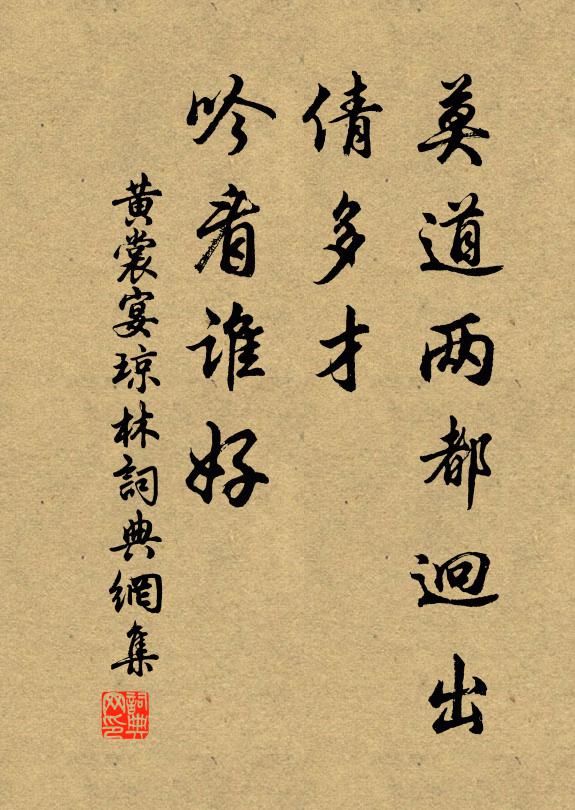 莫道两都迥出
倩多才
吟看誰好
黃裳宴琼林詞典網集
詞典网印